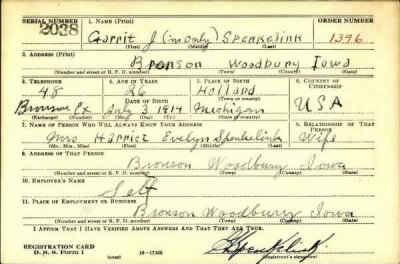 SERIAL NUMBER 1. NAME (Print) ORDER NUMBER
2038 Garrit J (in only) Spenkelink 1396
(First) (Middle) (Last)
2. ADDRESS (Print)
Bronson Woodbury Iowa
(Number and street or R. F. D. number) (Town) (County) (State)
3. TELEPHONE 4. AGE IN YEARS 5. PLACE OF BIRTH 6. COUNTRY OF CITIZENSHIP
48 26 Holland
DATE OF BIRTH
Bronson Ex July 3 1914 Michigan USA
(Exchange) (Number) (Mo.) (Day) (Yr.) (State or country)
7. NAME OF PERSON WHO WILL ALWAYS KNOW YOUR ADDRESS 8. RELATIONSHIP OF THAT PERSON
Mrs Harriet Evelyn Spenkelink Wife
(Mr., Mrs., Miss) (First) (Middle) (Last)
9. ADDRESS OF THAT PERSON
Bronson Woodbury Iowa
(Number and street or R. F. D. number) (Town) (County) (State)
10. EMPLOYER'S NAME
Self
11. PLACE OF EMPLOYMENT OR BUSINESS
Bronson Woodbury Iowa
(Number and street or R. F. D. number) (Town) (County) (State)
I AFFIRM THAT I HAVE VERIFIED ABOVE ANSWERS AND THAT THEY ARE TRUE.
REGISTRATION CARD
D. S. S. Form 1 16-17105 (Registrant's signature)